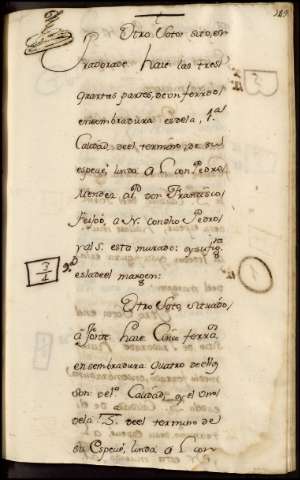 Otro Soto, sito, en
Pradorade, hace las tres
quartas partes, de un ferrado
en sembradura, es de la, 1.ª
Calidad, de el termino, de su
espeçie, linda a L. con Pedro
Mendez, a P. don Francisco
feijóo, a N. con dho Pedro
y al S. esta murado: y su fig.ra
es la de el margen:
3/4
Otro Soto, situado,
hace Çinco ferra.s
en sembradura. quatro de ellos
son de 1.ª Calidad, y el otro
de la de el termino de
su Espeçie, linda a L. con